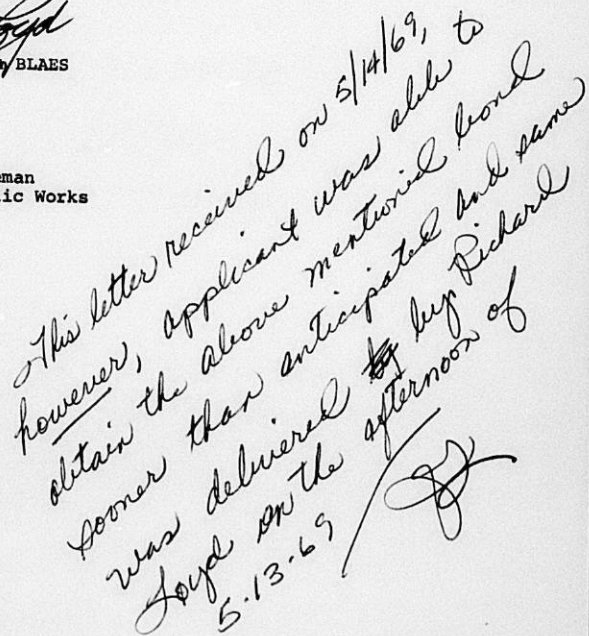 BLAES
eman
ic Works
This letter received on 5/14/69,
however, applicant was able to
obtain the above mentioned bond
sooner than anticipated and same
was delivered by by Richard
Loyd on the afternoon of
5-13-69